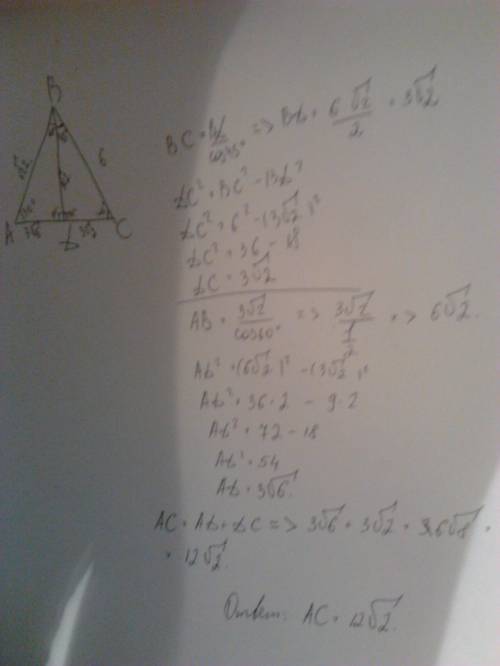 B
6
A
C
BC = BL/cos45° => BL = 6√2/2 = 3√2
LC² = BC² - BL²
LC² = 6² - (3√2)²
LC² = 36 - 18
LC = 3√2
AB = 3√2/cos60° => 3√2/(1/2) => 6√2.
AL² = (6√2)² - (3√2)²
AL² = 36·2 - 9·2
AL² = 72 - 18
AL² = 54
AL = 3√6.
AC = AL + LC => 3√6 + 3√2 =
= 12√2.
Ответ: AC = 12√2.